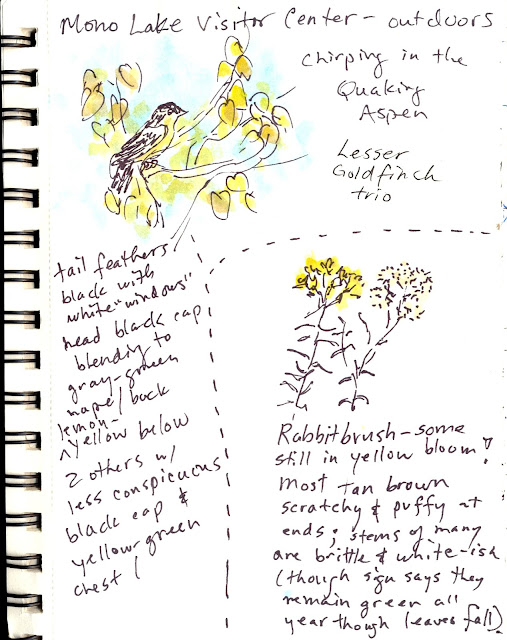 Mono Lake Visitor Center - outdoors
Chirping in the
Quaking
Aspen
Lesser
Goldfinch
trio
tail feathers
black with
white "windows"
head black cap
blending to
gray-green
nape/back
lemon-
yellow below
2 others w/
less conspicuous
black cap &
yellow-green
chest
Rabbitbrush - some
still in yellow bloom!
Most tan brown
scratchy & puffy at
ends; stems of many
are brittle & white-ish
(though sign says they
remain green all
year though leaves fall).